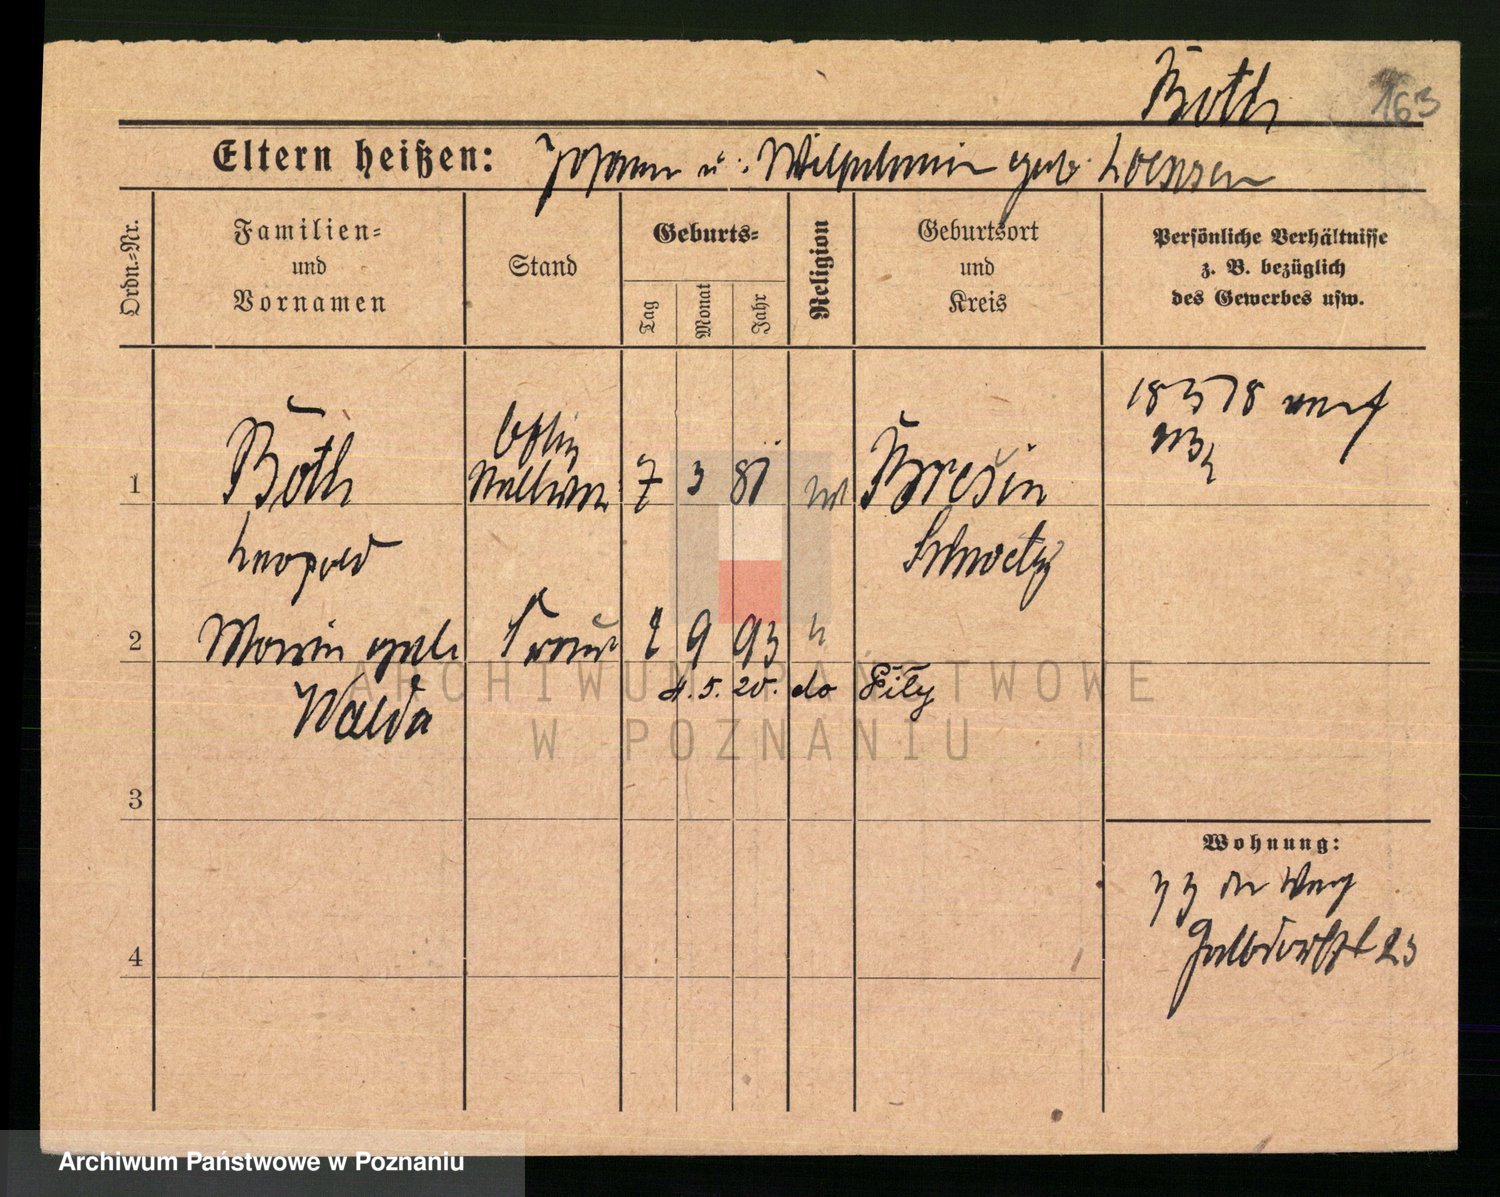 Both
163
Eltern heißen: Johann u. Wilhelmin geb.
Ordn.-Nr.
Familien- und Vornamen
Stand
Geburts-
Tag
Monat
Jahr
Religion
Geburtsort und Kreis
Persönliche Verhältnisse z. B. bezüglich des Gewerbes usw.
1
Both
7 3 81
Bresin
Leopold
Schwetz
2
Marie geb.
Frau
2 9 93
Walda
4. 5. 20. do Piły
3
4
Wohnung:
23
ARCHIWUM PAŃSTWOWE
W POZNANIU
Archiwum Państwowe w Poznaniu